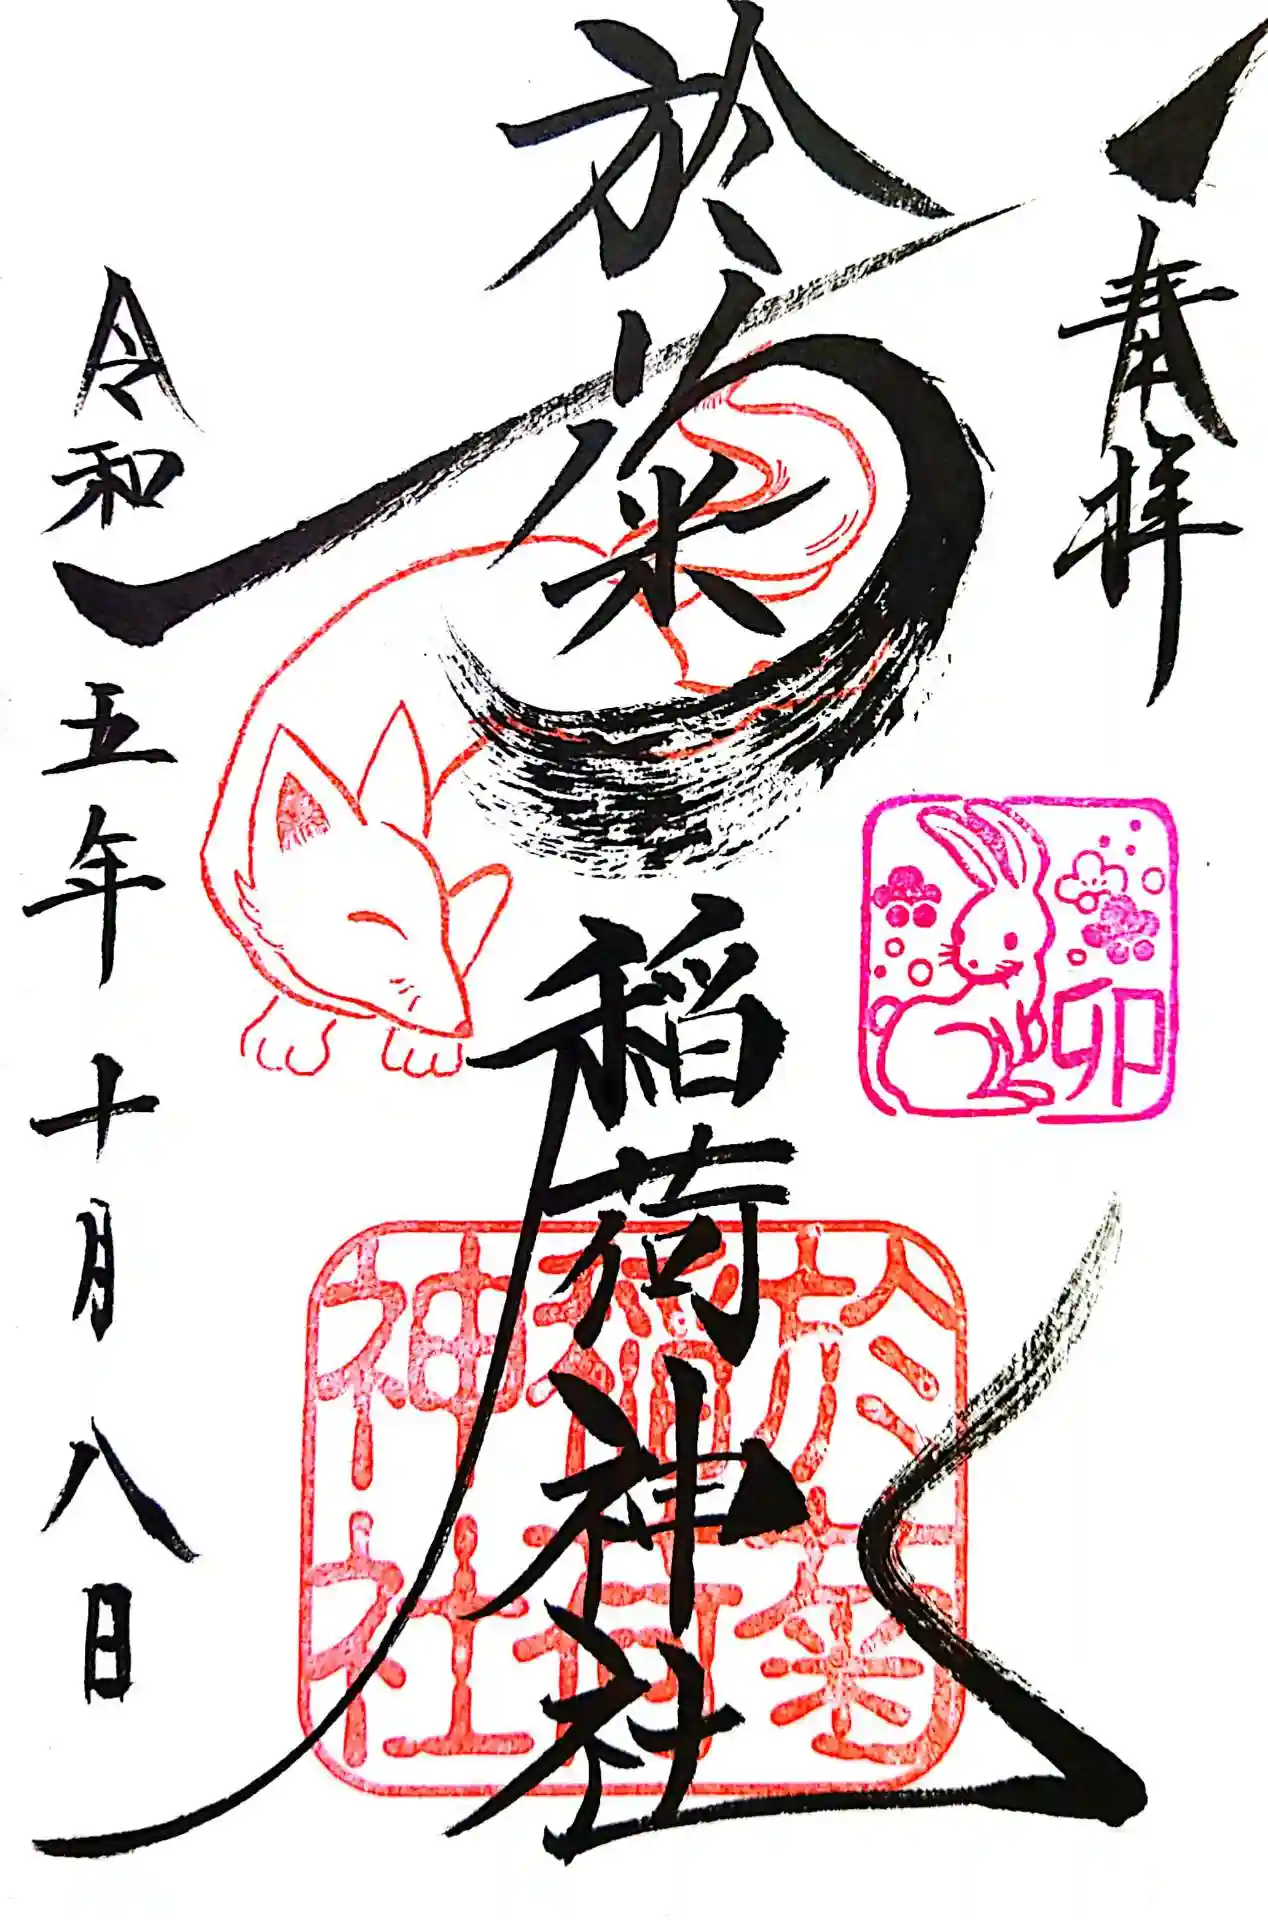 奉拝
於菊稲荷神社
令和五年十月八日
卯
於菊
稲荷
神社